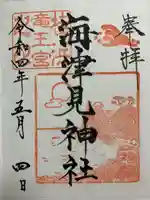 奉拝
海津見神社
令和四年五月四日
竜王宮